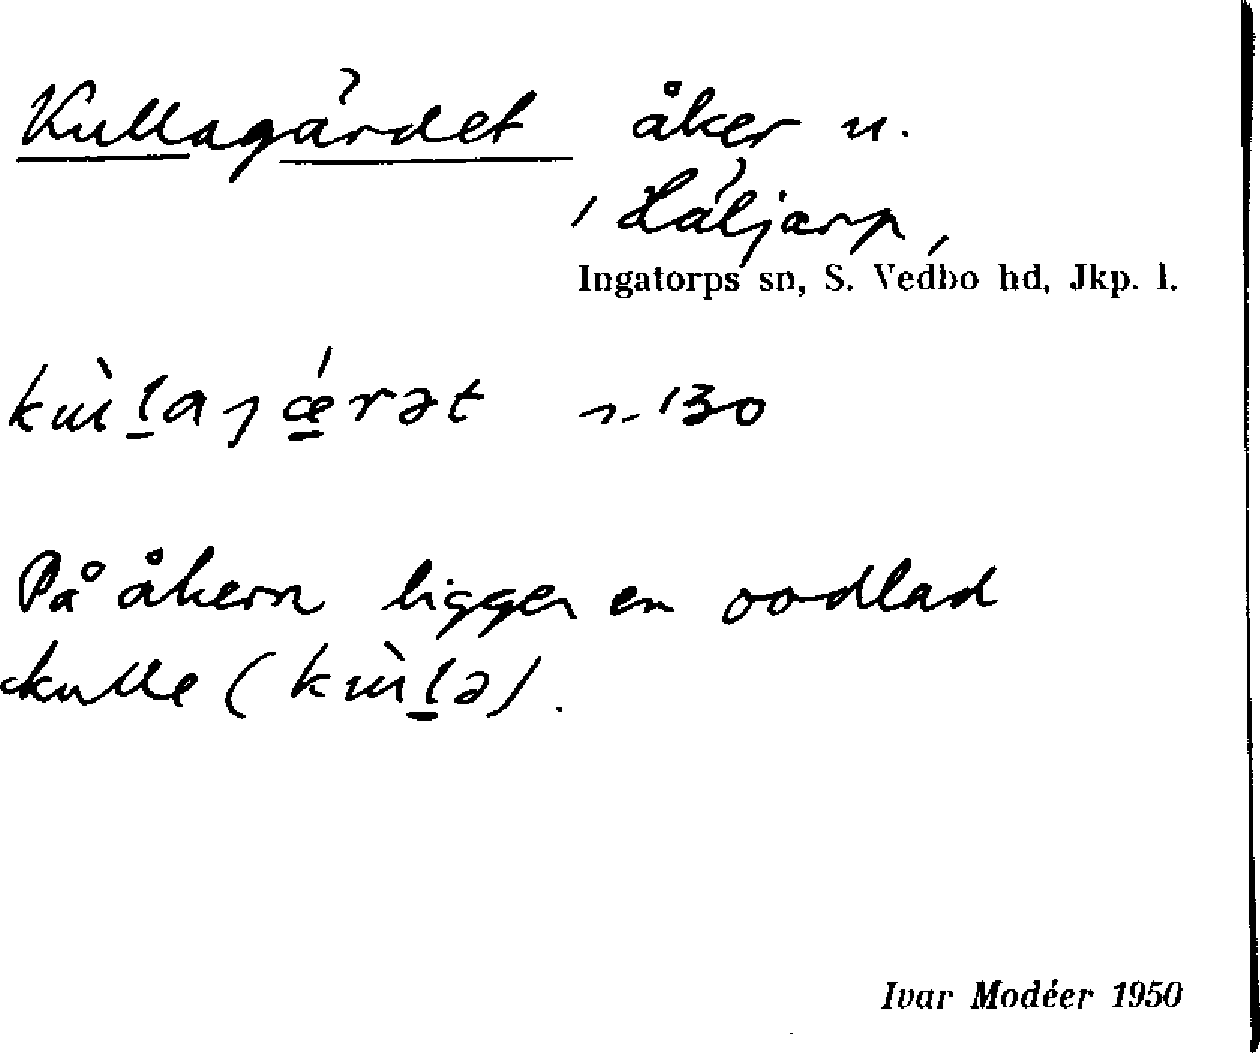 Kullagärdet åker u.
, Häljarp,
Ingatorps sn, S. Vedbo hd, Jkp. l.
n. 130
På åkern ligger en oodlad
kulle (kùlə).
Ivar Modéer 1950